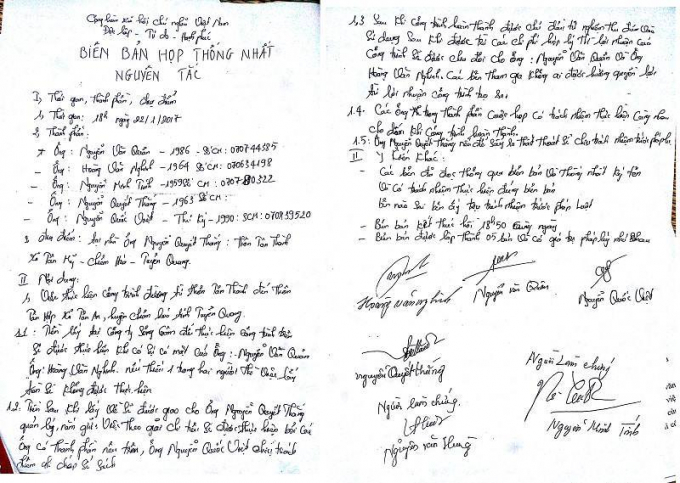 Cộng hòa xã hội chủ nghĩa Việt Nam
Độc lập - Tự do - Hạnh phúc
BIÊN BẢN HỌP THỐNG NHẤT
NGUYÊN TẮC
I, Thời gian, thành phần, địa điểm
1, Thời gian: 18h ngày 22/1/2017
2 Thành phần:
+ Ông: Nguyễn Văn Quân - 1986 - Số CM: 070744385
- Ông: Hoàng Văn Nghinh - 1964 Số CM: 070634198
- Ông: Nguyễn Minh Tính - 1959 Số CM: 070780322
- Ông: Nguyễn Quyết Thắng - 1963 Số CM:
- Ông: Nguyễn Quốc Việt - Thư ký - 1990: SCM: 070939520
3 địa điểm: tại nhà Ông Nguyễn Quyết Thắng: Thôn Tân Thành
Xã Tân Mỹ - Chiêm Hóa - Tuyên Quang.
II Nội dung:
1, thực hiện công trình đường từ thôn Tân Thành đến thôn
Tân Hợp xã Tân An, huyện chiêm hoá tỉnh Tuyên Quang.
1.1: Tiền tại Công ty Sông Gâm để thực hiện công trình trên
Sẽ được thực hiện khi có mặt Các Ông: Nguyễn Văn Quân
Ông: Hoàng Văn Nghinh. nếu thiếu 1 trong hai người thì việc lấy
tiền sẽ không được thực hiện
1.2. Tiền sau khi lấy về sẽ được giao cho Ông Nguyễn Quyết Thắng
quản lý, nắm giữ. Việc chi tiêu sẽ được thực hiện bởi Các
Ông có thành phần nêu trên, Ông Nguyễn Quốc Việt chịu trách
nhiệm ghi chép sổ sách
1.3 Sau khi công trình hoàn thành được
sử dụng sau khi được trừ các chi phí hợp lý thì lợi nhuận của
công trình sẽ được chia đôi cho Ông: Nguyễn Văn Quân và Ông
Hoàng Văn Nghinh. Các bên tham gia không ai được hưởng quyền lợi
từ lợi nhuận công trình tạo ra.
1.4. Các ông trong thành phần cuộc họp có trách nhiệm thực hiện
cho đến khi công trình hoàn thành.
1.5: Ông Nguyễn Quyết Thắng nếu để xảy ra thất thoát sẽ chịu trách nhiệm trước pháp luật
II Ý kiến khác:
- Các bên đã đọc thông qua biên bản và thống nhất ký tên
Và có trách nhiệm thực hiện đúng biên bản
bên nào sai bên ấy chịu trách nhiệm trước pháp luật
- Biên bản kết thúc hồi 18h50 cùng ngày
- Biên bản được lập thành 05 bản và có giá trị pháp lý như nhau
Hoàng văn nghinh
Nguyễn văn Quân
Nguyễn Quốc Việt
nguyễn Quyết thắng
Người làm chứng.
Nguyễn văn Hưng
Người Làm chứng
Nguyễn Minh Tính